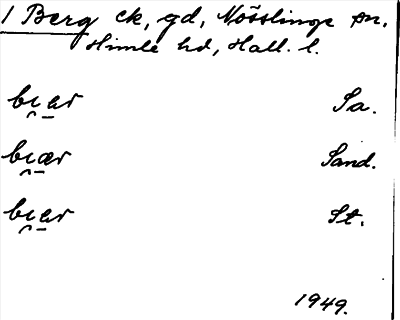 1 Berg ck, gd, Nösslinge sn,
Himle hd, Hall. l.
bɩar Sa.
bɩær Sand.
bɩar St.
1949.